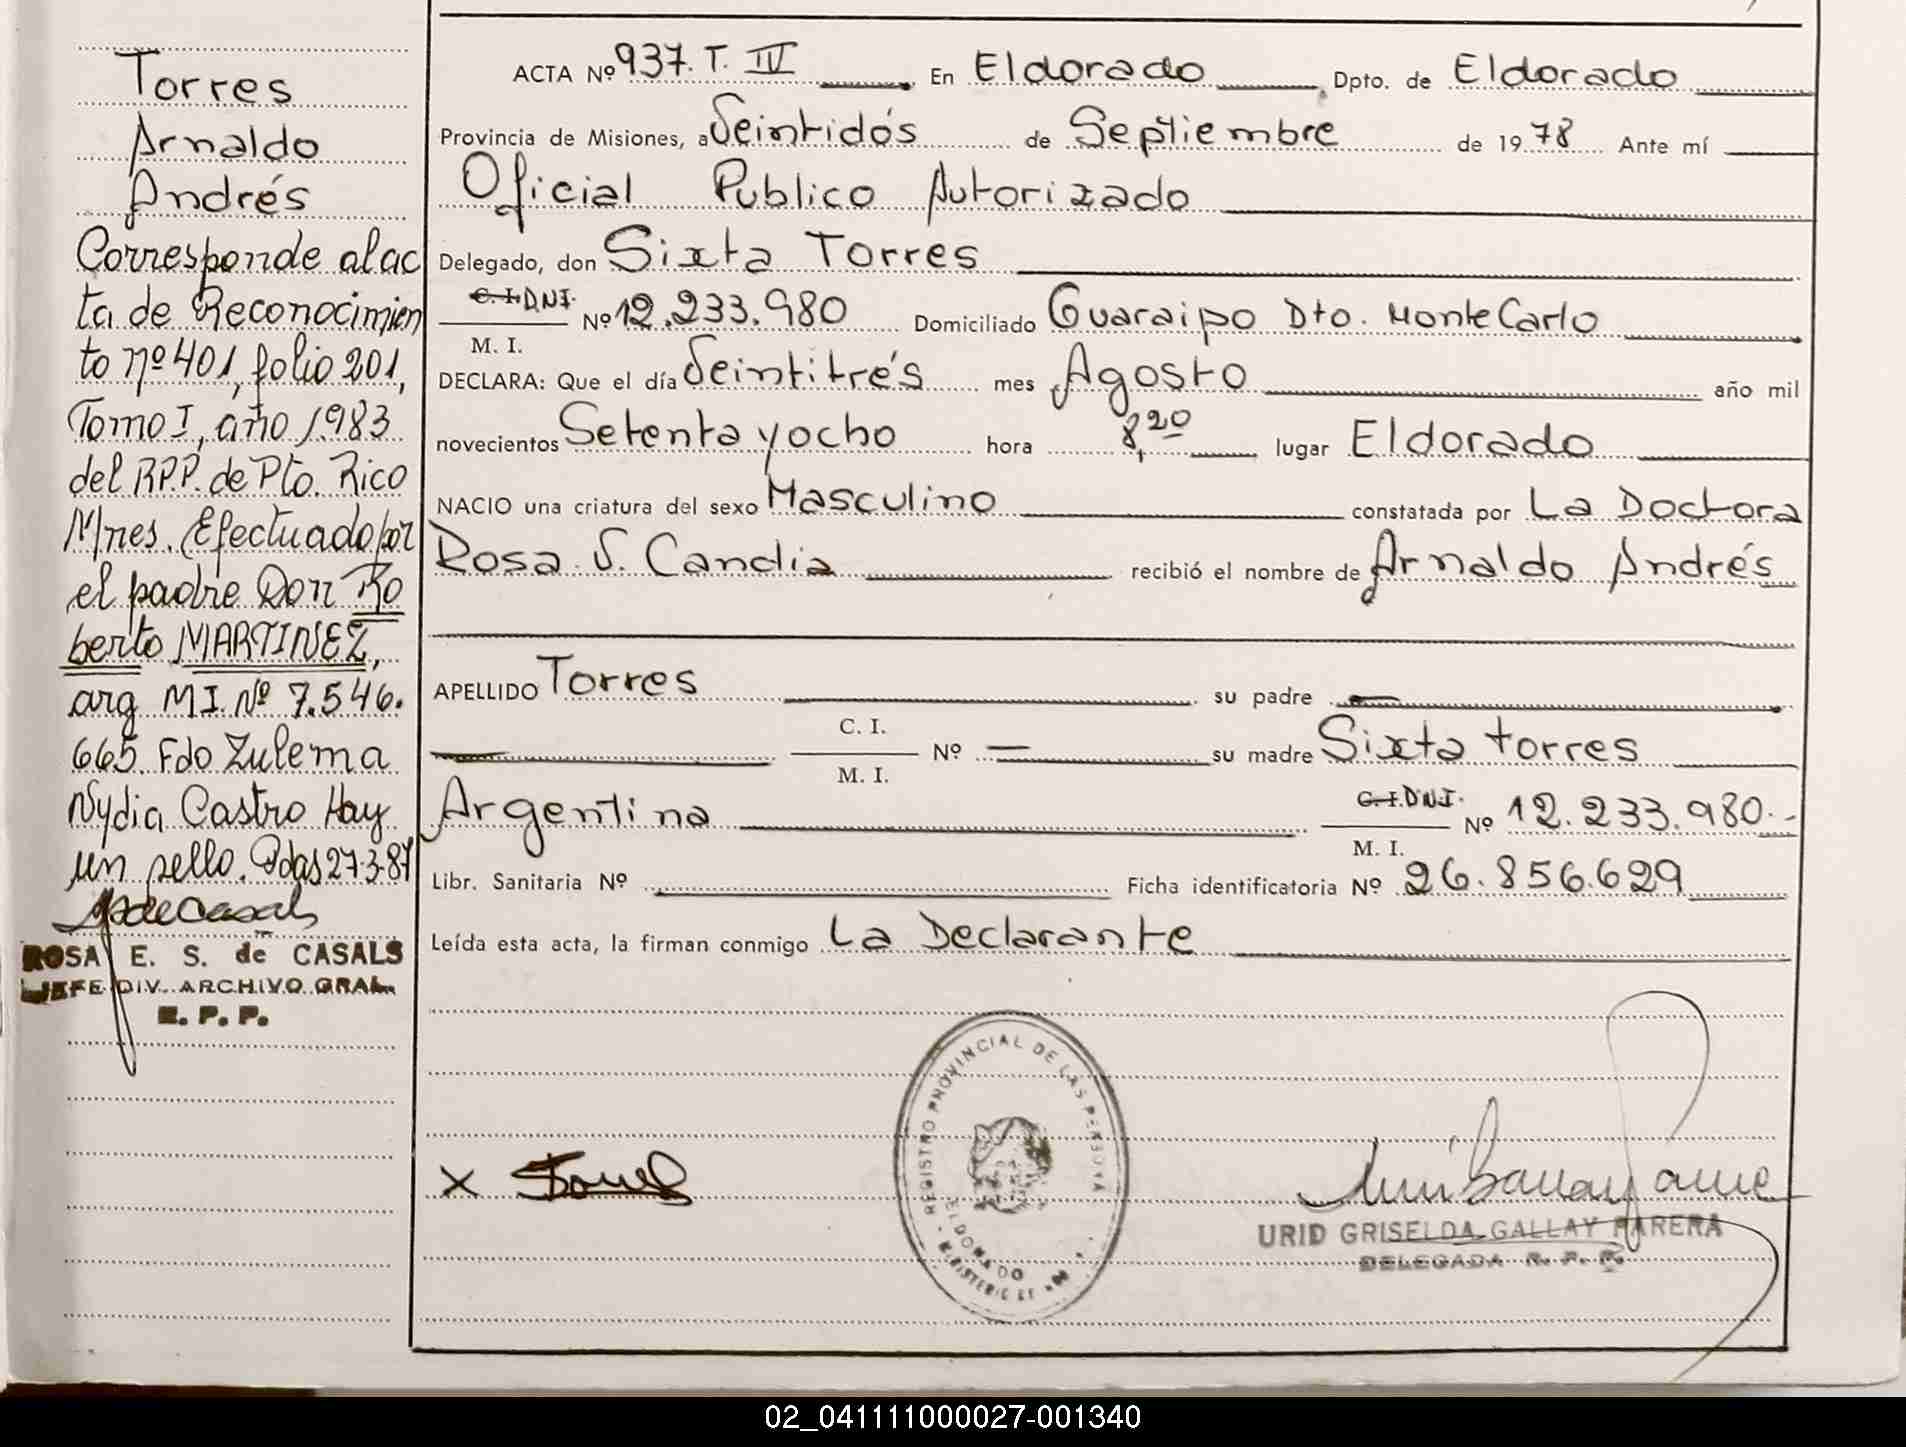 Torres
Arnaldo
Andrés
Corresponde al ac
ta de Reconocimien
to nº 401, folio 201,
Tomo I, año 1983
del R.P.P. de Pto. Rico
Mnes. Efectuado por
el padre Don Ro
berto MARTINEZ,
arg M.I. Nº 7.546.
665. Fdo Zulema
Nydia Castro Hay
un sello. Pdas 27-3-87
ROSA E. S. de CASALS
JEFE DIV. ARCHIVO GRAL.
R. P. P.
ACTA Nº 937. T. IV En Eldorado Dpto. de Eldorado
Provincia de Misiones, a Veintidós de Septiembre de 1978 Ante mí
Oficial Publico Autorizado
Delegado, don Sixta Torres
C.I. D.N.I. M. I. Nº 12.233.980 Domiciliado Guaraipo Dto. Monte Carlo
DECLARA: Que el día Veintitrés mes Agosto año mil
novecientos Setenta y ocho hora 8,20 lugar Eldorado
NACIO una criatura del sexo Masculino constatada por La Doctora
Rosa V. Candia recibió el nombre de Arnaldo Andrés
APELLIDO Torres su padre —
— C. I. M. I. Nº — su madre Sixta torres
Argentina C.I. D.N.I. M. I. Nº 12.233.980.-
Libr. Sanitaria Nº Ficha identificatoria Nº 26.856.629
Leída esta acta, la firman conmigo La Declarante
X
REGISTRO PROVINCIAL DE LAS PERSONAS
ELDORADO
MINISTERIO DE
URID GRISELDA GALLAY PARERA
DELEGADA R. P. P.
02_041111000027-001340